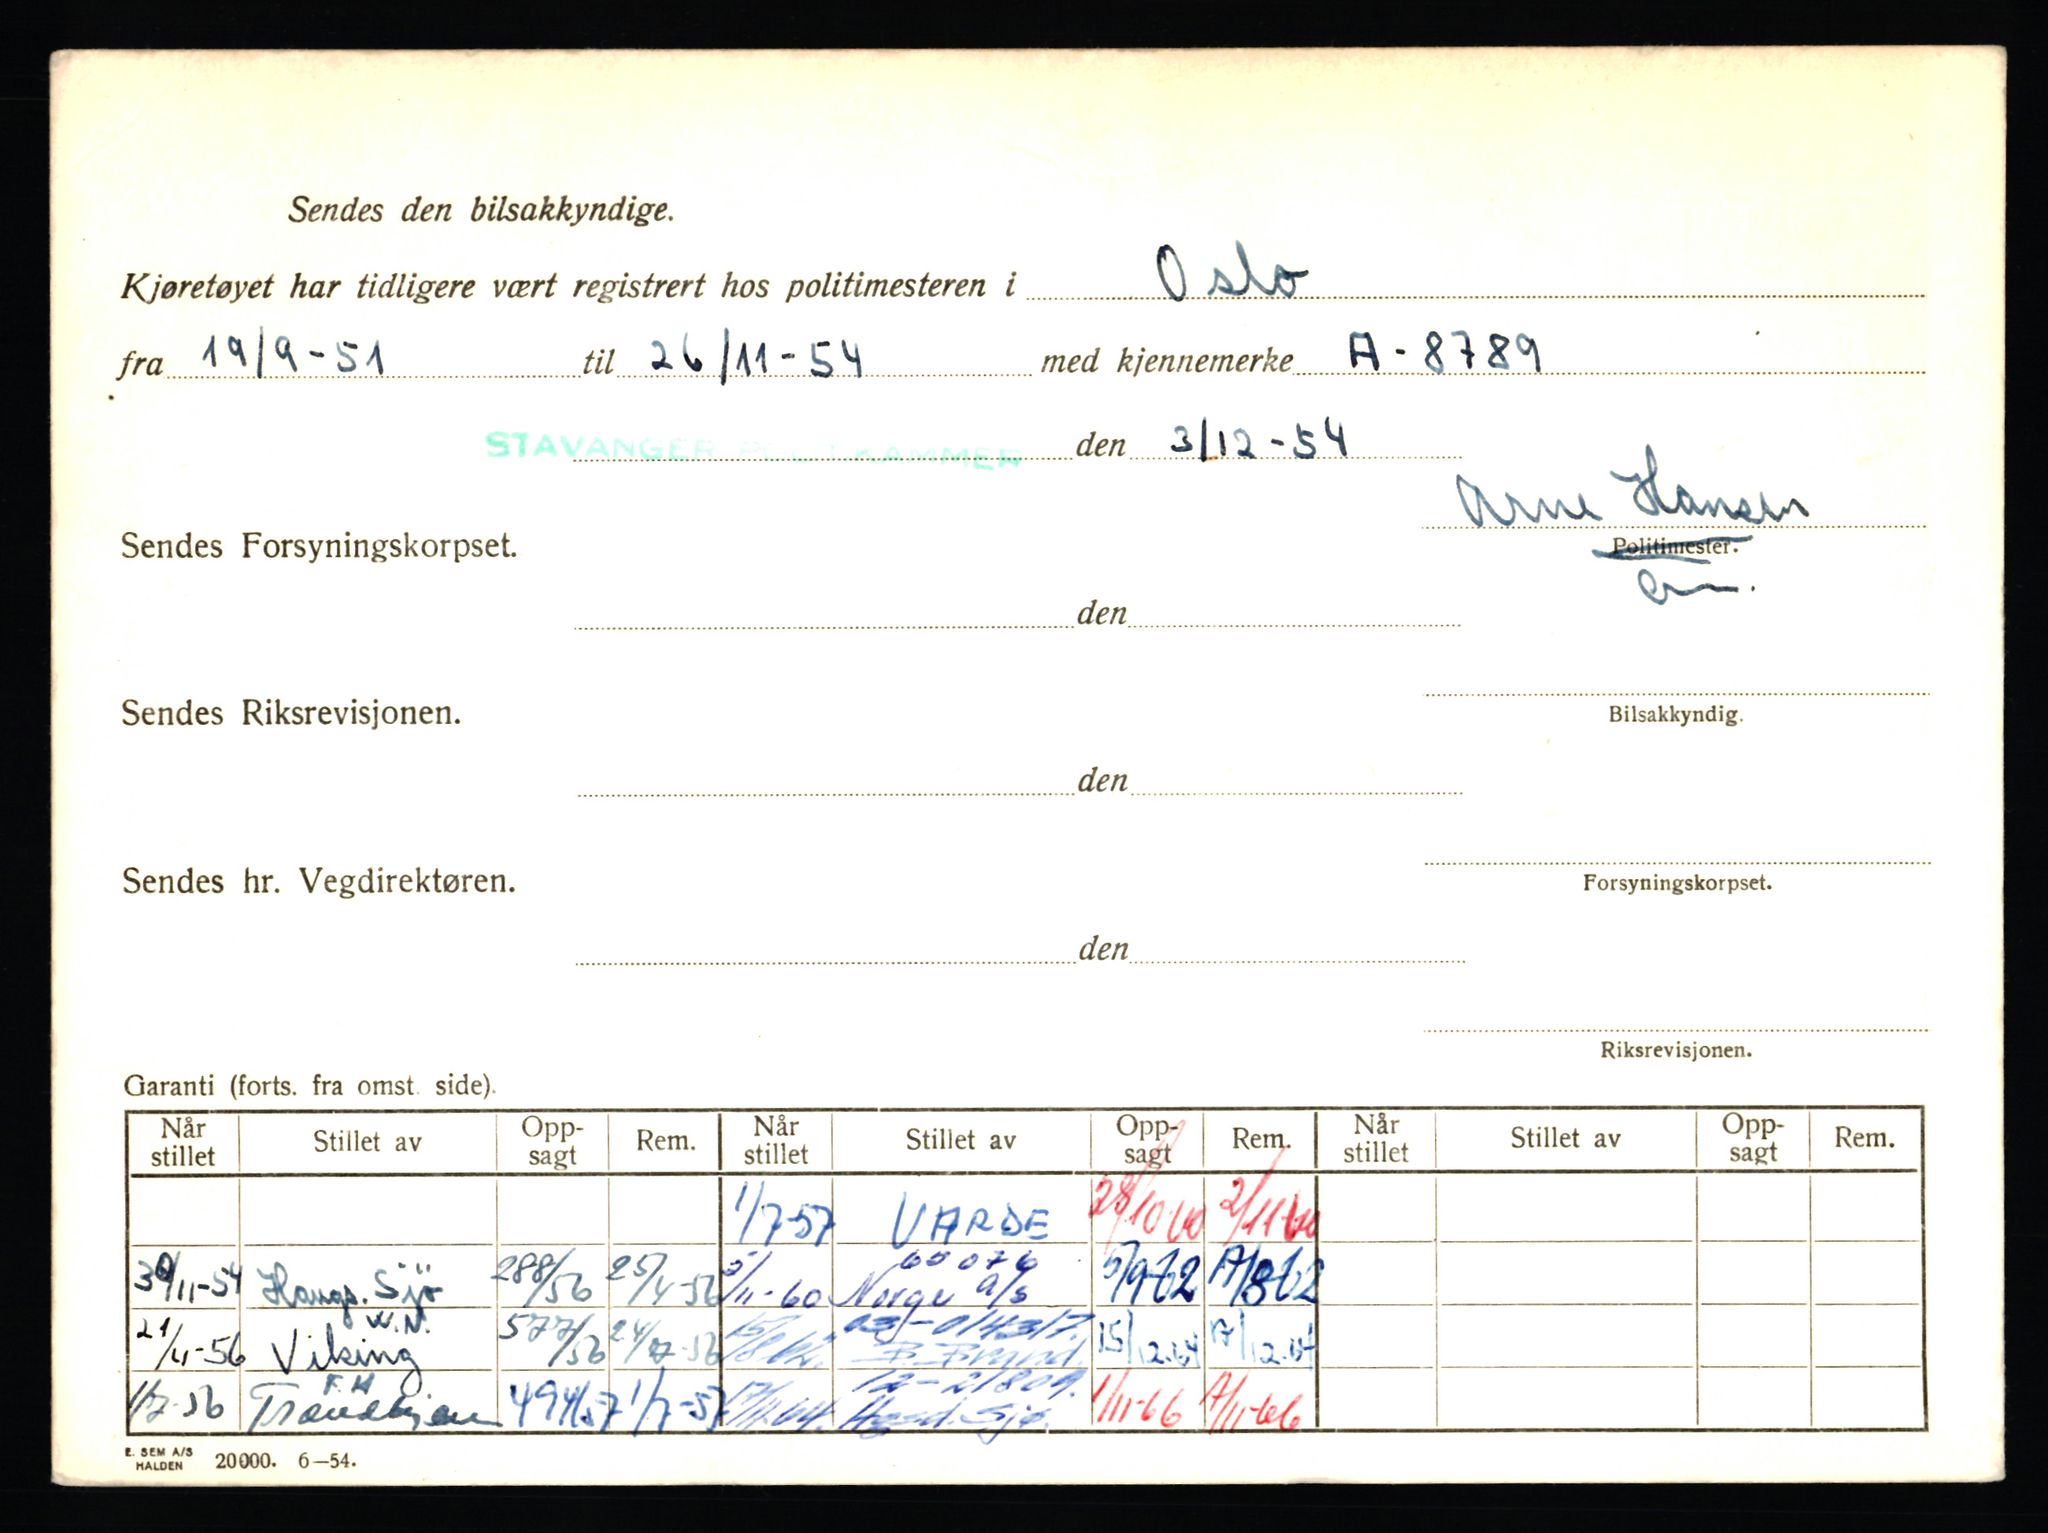 Sendes den bilsakkyndige.
Kjøretøyet har tidligere vært registrert hos politimesteren i Oslo
fra 19/9-51 til 26/11-54 med kjennemerke A-8789
STAVANGER POLITIKAMMER den 3/12-54
Arne Hansen
Sendes Forsyningskorpset.
Politimester.
den
Sendes Riksrevisjonen.
Bilsakkyndig.
den
Sendes hr. Vegdirektøren.
Forsyningskorpset.
den
Riksrevisjonen.
Garanti (forts. fra omst. side).
Når stillet Stillet av Opp-sagt Rem. Når stillet Stillet av Opp-sagt Rem. Når stillet Stillet av Opp-sagt Rem.
1/7-57 VARDE 28/10-60 2/11-60
30/11-54 Haugs. Sjø 288/56 25/4-56 5/11-60 65076 Norge a/s 5/9-62
21/4-56 W.N. Viking 577/56 24/7-56 03-014317. 15/12.64
1/7-56 F.H Trondhjem 494/57 1/7-57 17/11.64. 12-21809. Sjø. 1/11-66
E. SEM A/S
HALDEN 20000. 6—54.